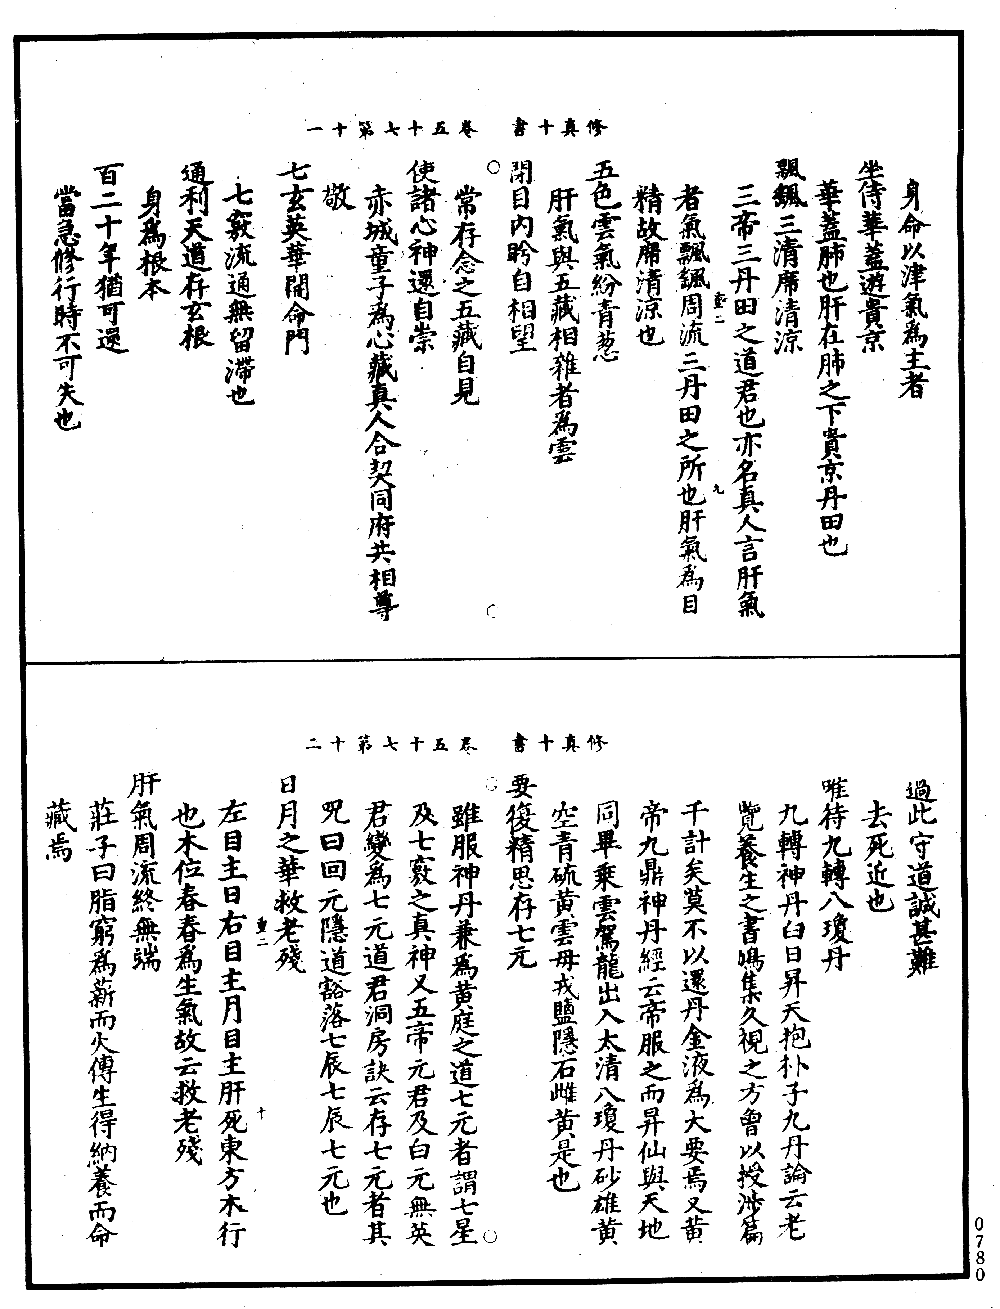 修真十書　卷五十七第十一
身命以津氣為主者
坐侍華蓋遊貴京
華蓋肺也肝在肺之下貴京丹田也
飄颻三清席清涼
三帝三丹田之道君也亦名真人言肝氣
者氣飄颻周流三丹田之所也肝氣為目
精故席清涼也
五色雲氣紛青葱
肝氣與五藏相雜者為雲
閉目內眄自相望
常存念之五藏自見
使諸心神還自崇
赤城童子為心藏真人合契同府共相尊
敬
七玄英華開命門
七竅流通無留滯也
通利天道存玄根
身為根本
百二十年猶可還
當急修行時不可失也
重二
九
修真十書　卷五十七第十二
過此守道誠甚難
去死近也
唯待九轉八瓊丹
九轉神丹白日昇天抱朴子九丹論云老
覽養生之書鳩集久視之方曾以授涉篇
千計矣莫不以還丹金液為大要焉又黃
帝九鼎神丹經云帝服之而昇仙與天地
同畢乘雲駕龍出入太清八瓊丹砂雄黃
空青硫黃雲母戎鹽隱石雌黃是也
要復精思存七元
雖服神丹兼為黃庭之道七元者謂七星
及七竅之真神又五帝元君及白元無英
君變為七元道君洞房訣云存七元者其
咒曰回元隱道豁落七辰七辰七元也
日月之華救老殘
左目主日右目主月目主肝死東方木行
也木位春春為生氣故云救老殘
肝氣周流終無端
莊子曰脂窮為薪而火傳生得納養而命
藏焉
重二
十
0780